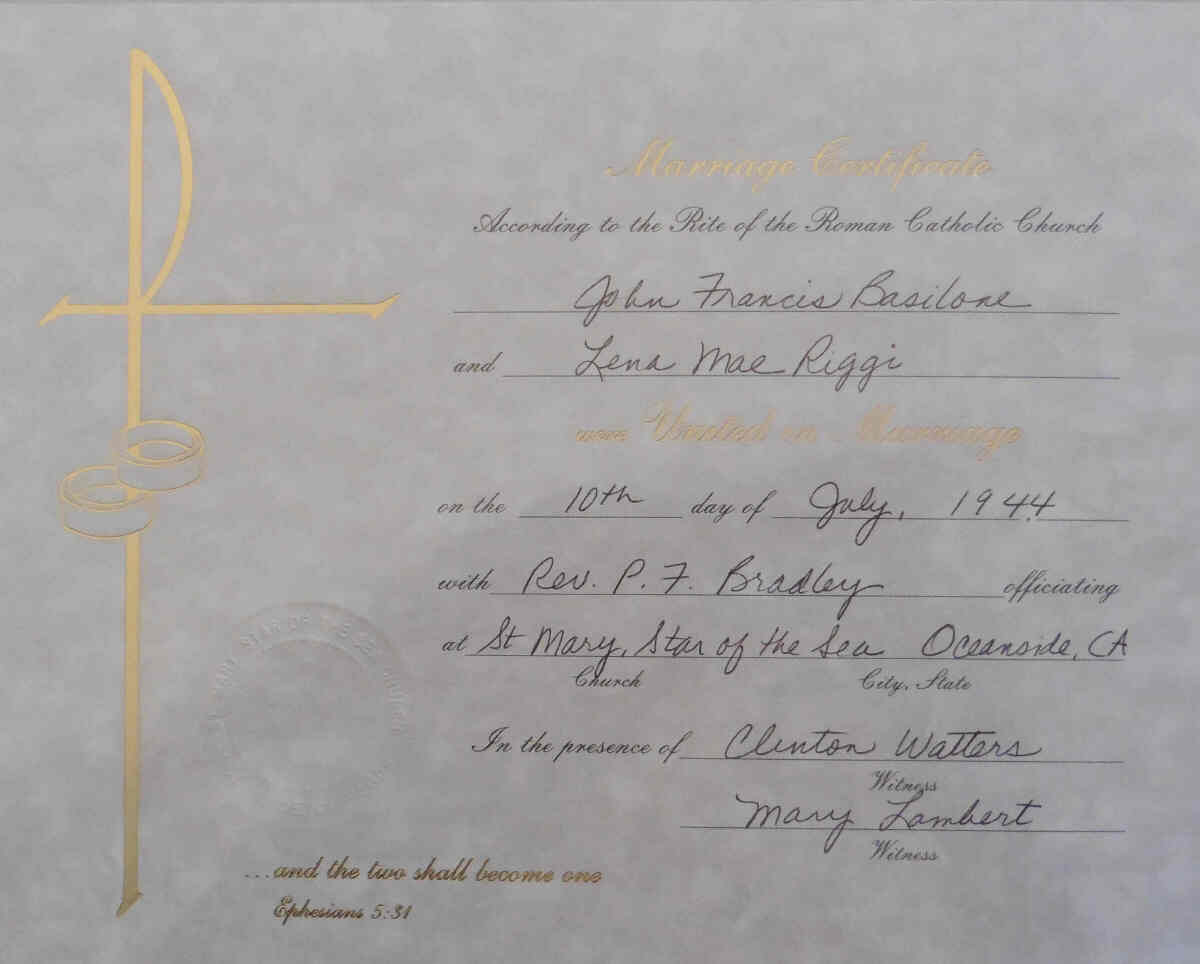 Marriage Certificate
According to the Rite of the Roman Catholic Church
John Francis Basilone
and Lena Mae Riggi
were United in Marriage
on the 10th day of July, 1944
with Rev. P. F. Bradley officiating
at St Mary, Star of the Sea Oceanside, CA
Church City, State
In the presence of Clinton Watters
Witness
Mary Lambert
Witness
STAR OF
...and the two shall become one
Ephesians 5:31